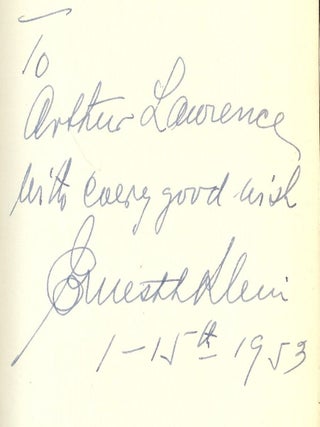 To
Arthur Lawrence
with every good wish
Ernest K Klein
1-15th 1953